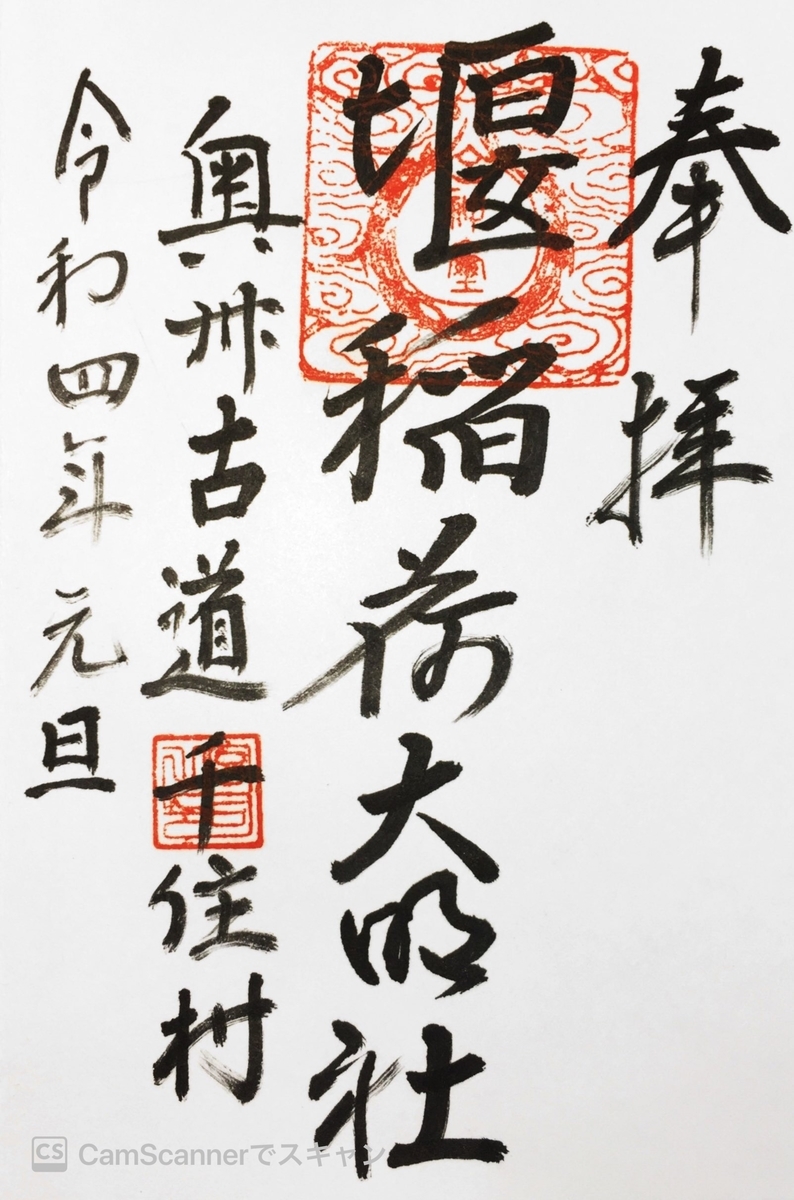 奉拝
堰稲荷大明社
奥州古道千住村
令和四年元旦
CS CamScannerでスキャン